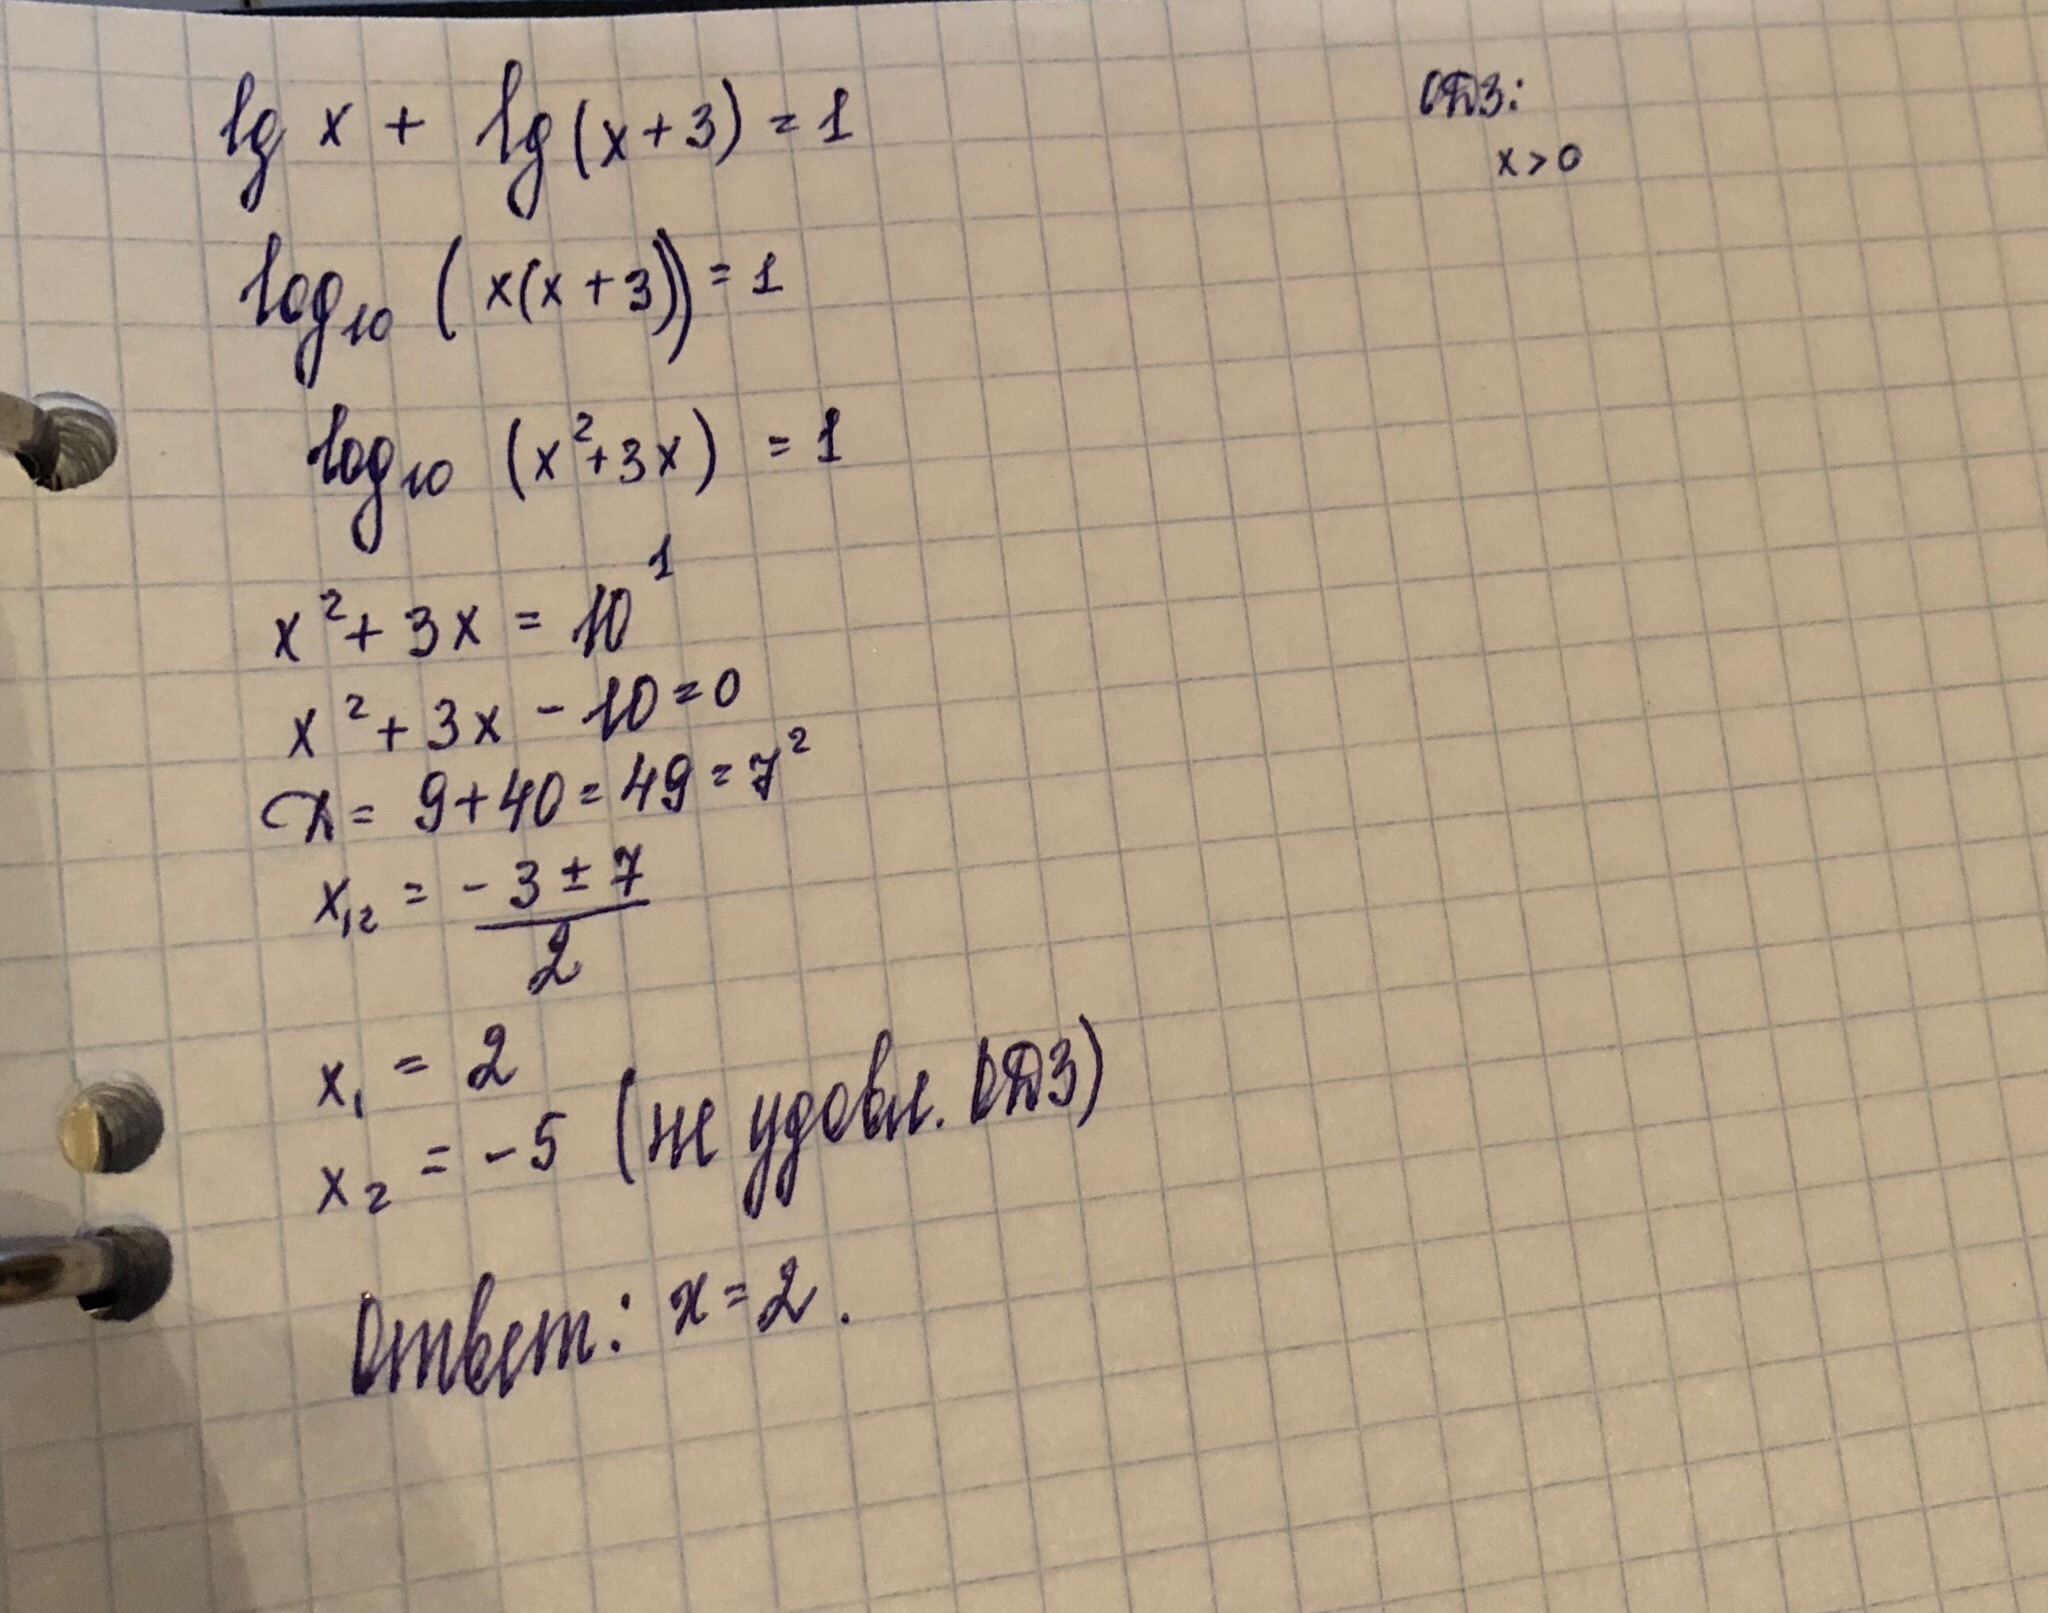 lg x + lg (x+3) = 1
ОДЗ:
x > 0
log₁₀ (x(x+3)) = 1
log₁₀ (x²+3x) = 1
x² + 3x = 10¹
x² + 3x - 10 = 0
Д = 9+40 = 49 = 7²
x₁₂ = (-3 ± 7)/2
x₁ = 2
x₂ = -5 (не удовл. ОДЗ)
Ответ: x = 2.